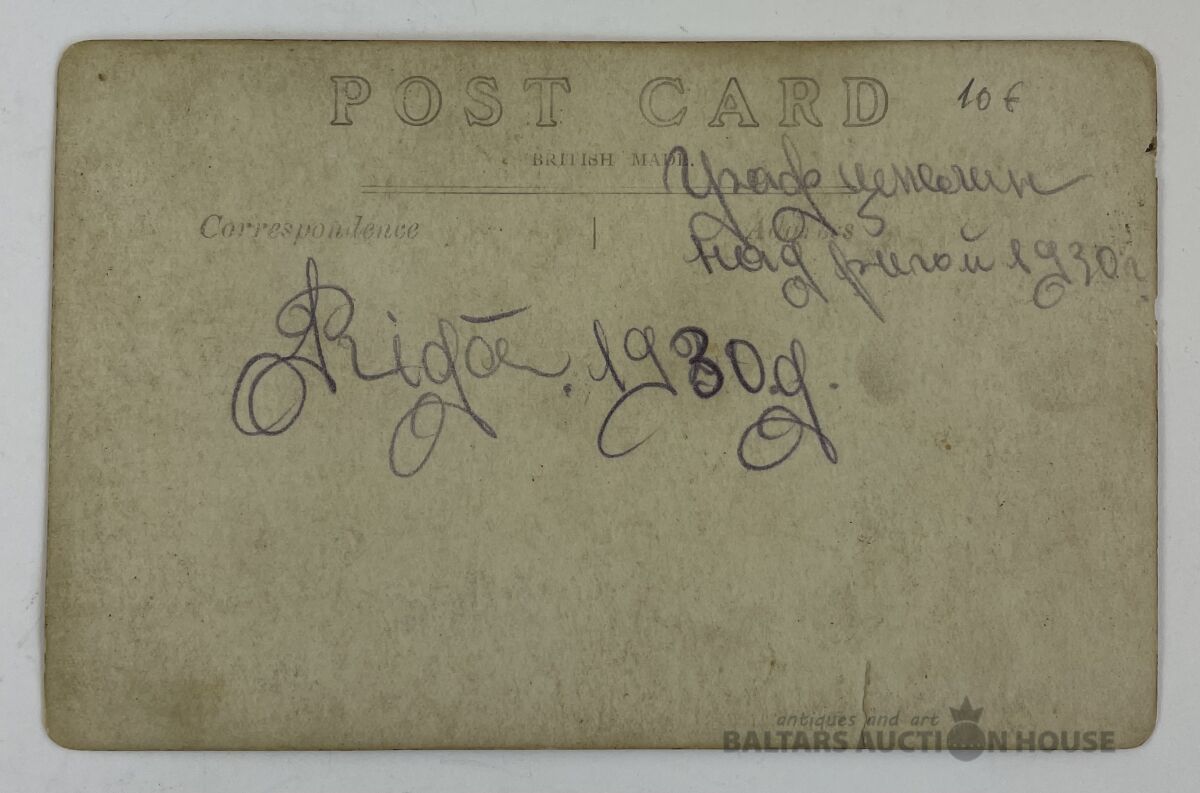 POST CARD
10 €
BRITISH MADE.
Граф цепелин
над ригой 1930 г.
Correspondence
Address
Rīgā. 1930.g.
antiques and art
BALTARS AUCTION HOUSE